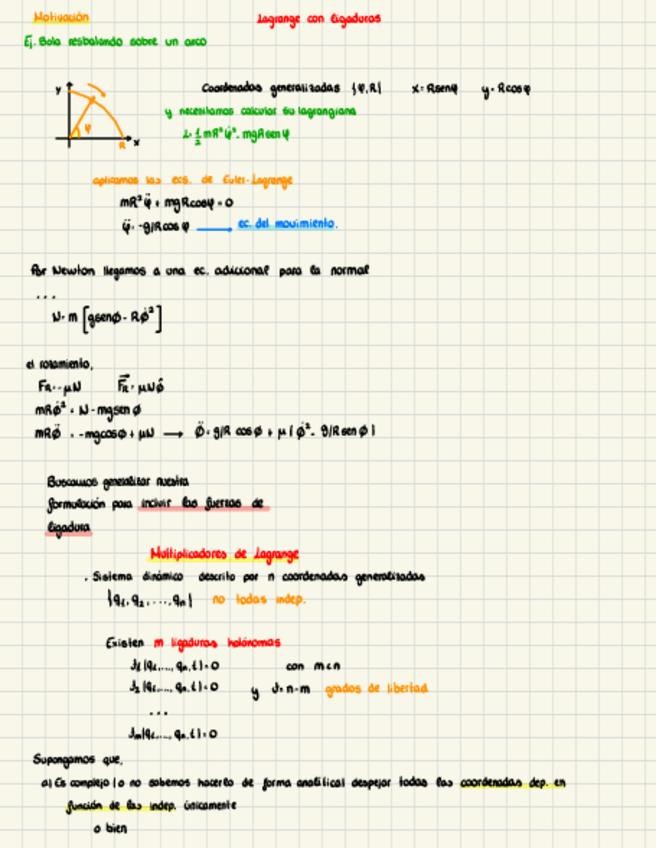 Motivación
Lagrange con ligaduras
Ej. Bola resbalando sobre un arco
Coordenadas generalizadas {φ,R} x=Rsenφ y=Rcosφ
y
φ
R x
y necesitamos calcular su lagrangiana
L= 1/2 mR²φ̇² - mgRsenφ
aplicamos las ecs. de Euler-Lagrange
mR²φ̈ + mgRcosφ=0
φ̈ = -g/R cosφ → ec. del movimiento.
Por Newton llegamos a una ec. adicional para la normal
...
N= m [gsenϕ - Rϕ̇²]
el rozamiento,
mRϕ̇² = N - mgsenϕ
mRϕ̈ = -mgcosϕ + μN → ϕ̈ = g/R cosϕ + μ(ϕ̇² - g/R senϕ)
Buscamos generalizar nuestra
formulación para incluir las fuerzas de
ligadura
Multiplicadores de Lagrange
. Sistema dinámico descrito por n coordenadas generalizadas
{q₁, q₂, ..., qₙ} no todas indep.
Existen m ligaduras holónomas
f₁(q₁,..., qₙ,t)=0 con m<n
f₂(q₁,..., qₙ,t)=0 y f=n-m grados de libertad
...
fₘ(q₁,..., qₙ,t)=0
Supongamos que,
a) Es complejo (o no sabemos hacerlo de forma analítica) despejar todas las coordenadas dep. en
función de las indep. únicamente
o bien